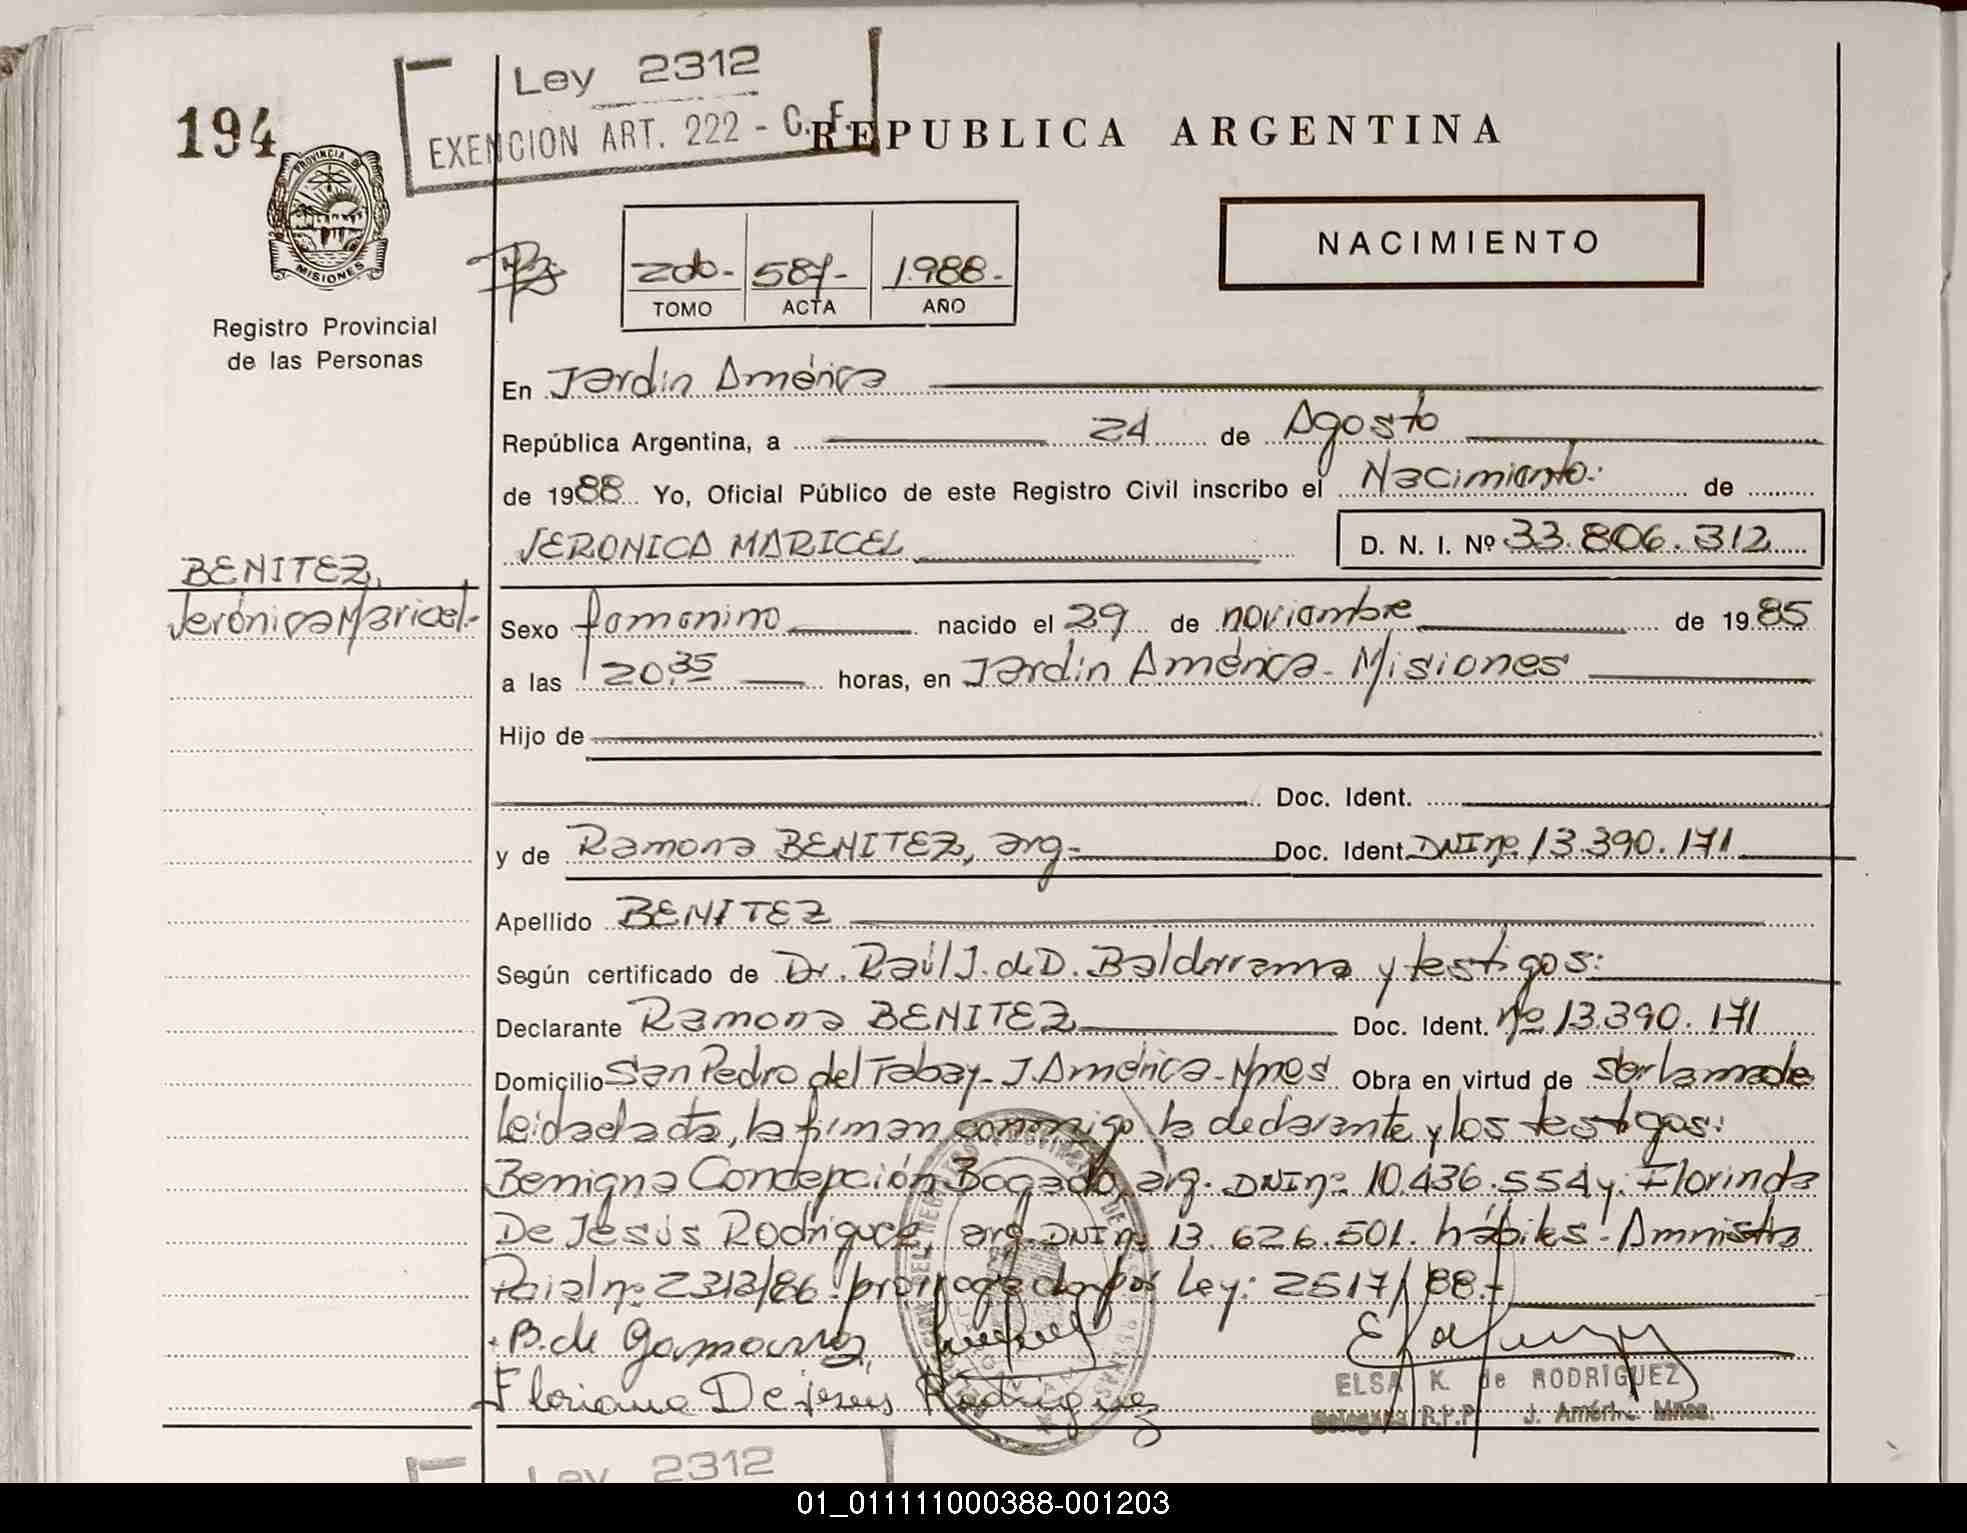 Ley 2312
EXENCION ART. 222 - C. F.
194
REPUBLICA ARGENTINA
PROVINCIA D
MISIONES
Registro Provincial
de las Personas
NACIMIENTO
2do- 584- 1.988.-
TOMO ACTA AÑO
En Jardín América
República Argentina, a 24 de Agosto
de 1988 Yo, Oficial Público de este Registro Civil inscribo el Nacimiento: de
VERONICA MARICEL D. N. I. Nº 33.806.312
BENITEZ,
Verónica Maricel.-
Sexo femenino nacido el 29 de noviembre de 1985
a las 20,35 horas, en Jardín América - Misiones
Hijo de
Doc. Ident.
y de Ramona BENITEZ, arg.- Doc. Ident. DNI nº 13.390.171
Apellido BENITEZ
Según certificado de Dr. Raúl J. de D. Balderrama y testigos:
Declarante Ramona BENITEZ Doc. Ident. nº 13.390.171
Domicilio San Pedro del Tabay - J. América - Mnes Obra en virtud de ser la madre
Leída el acta, la firman conmigo la declarante y los testigos:
Benigna Concepción Bogado, arg. DNI nº 10.436.554 y Florinda
De Jesús Rodríguez, arg. DNI nº 13.626.501. hábiles.- Amnistía
Pcial nº 2313/86 prorrogada por Ley: 2517/88.-
B. de Gamarra
Floriana De jesús Rodriguez
ELSA K. de RODRIGUEZ
R.P.P. J. Améri. Mnes.
Ley 2312
01_011111000388-001203